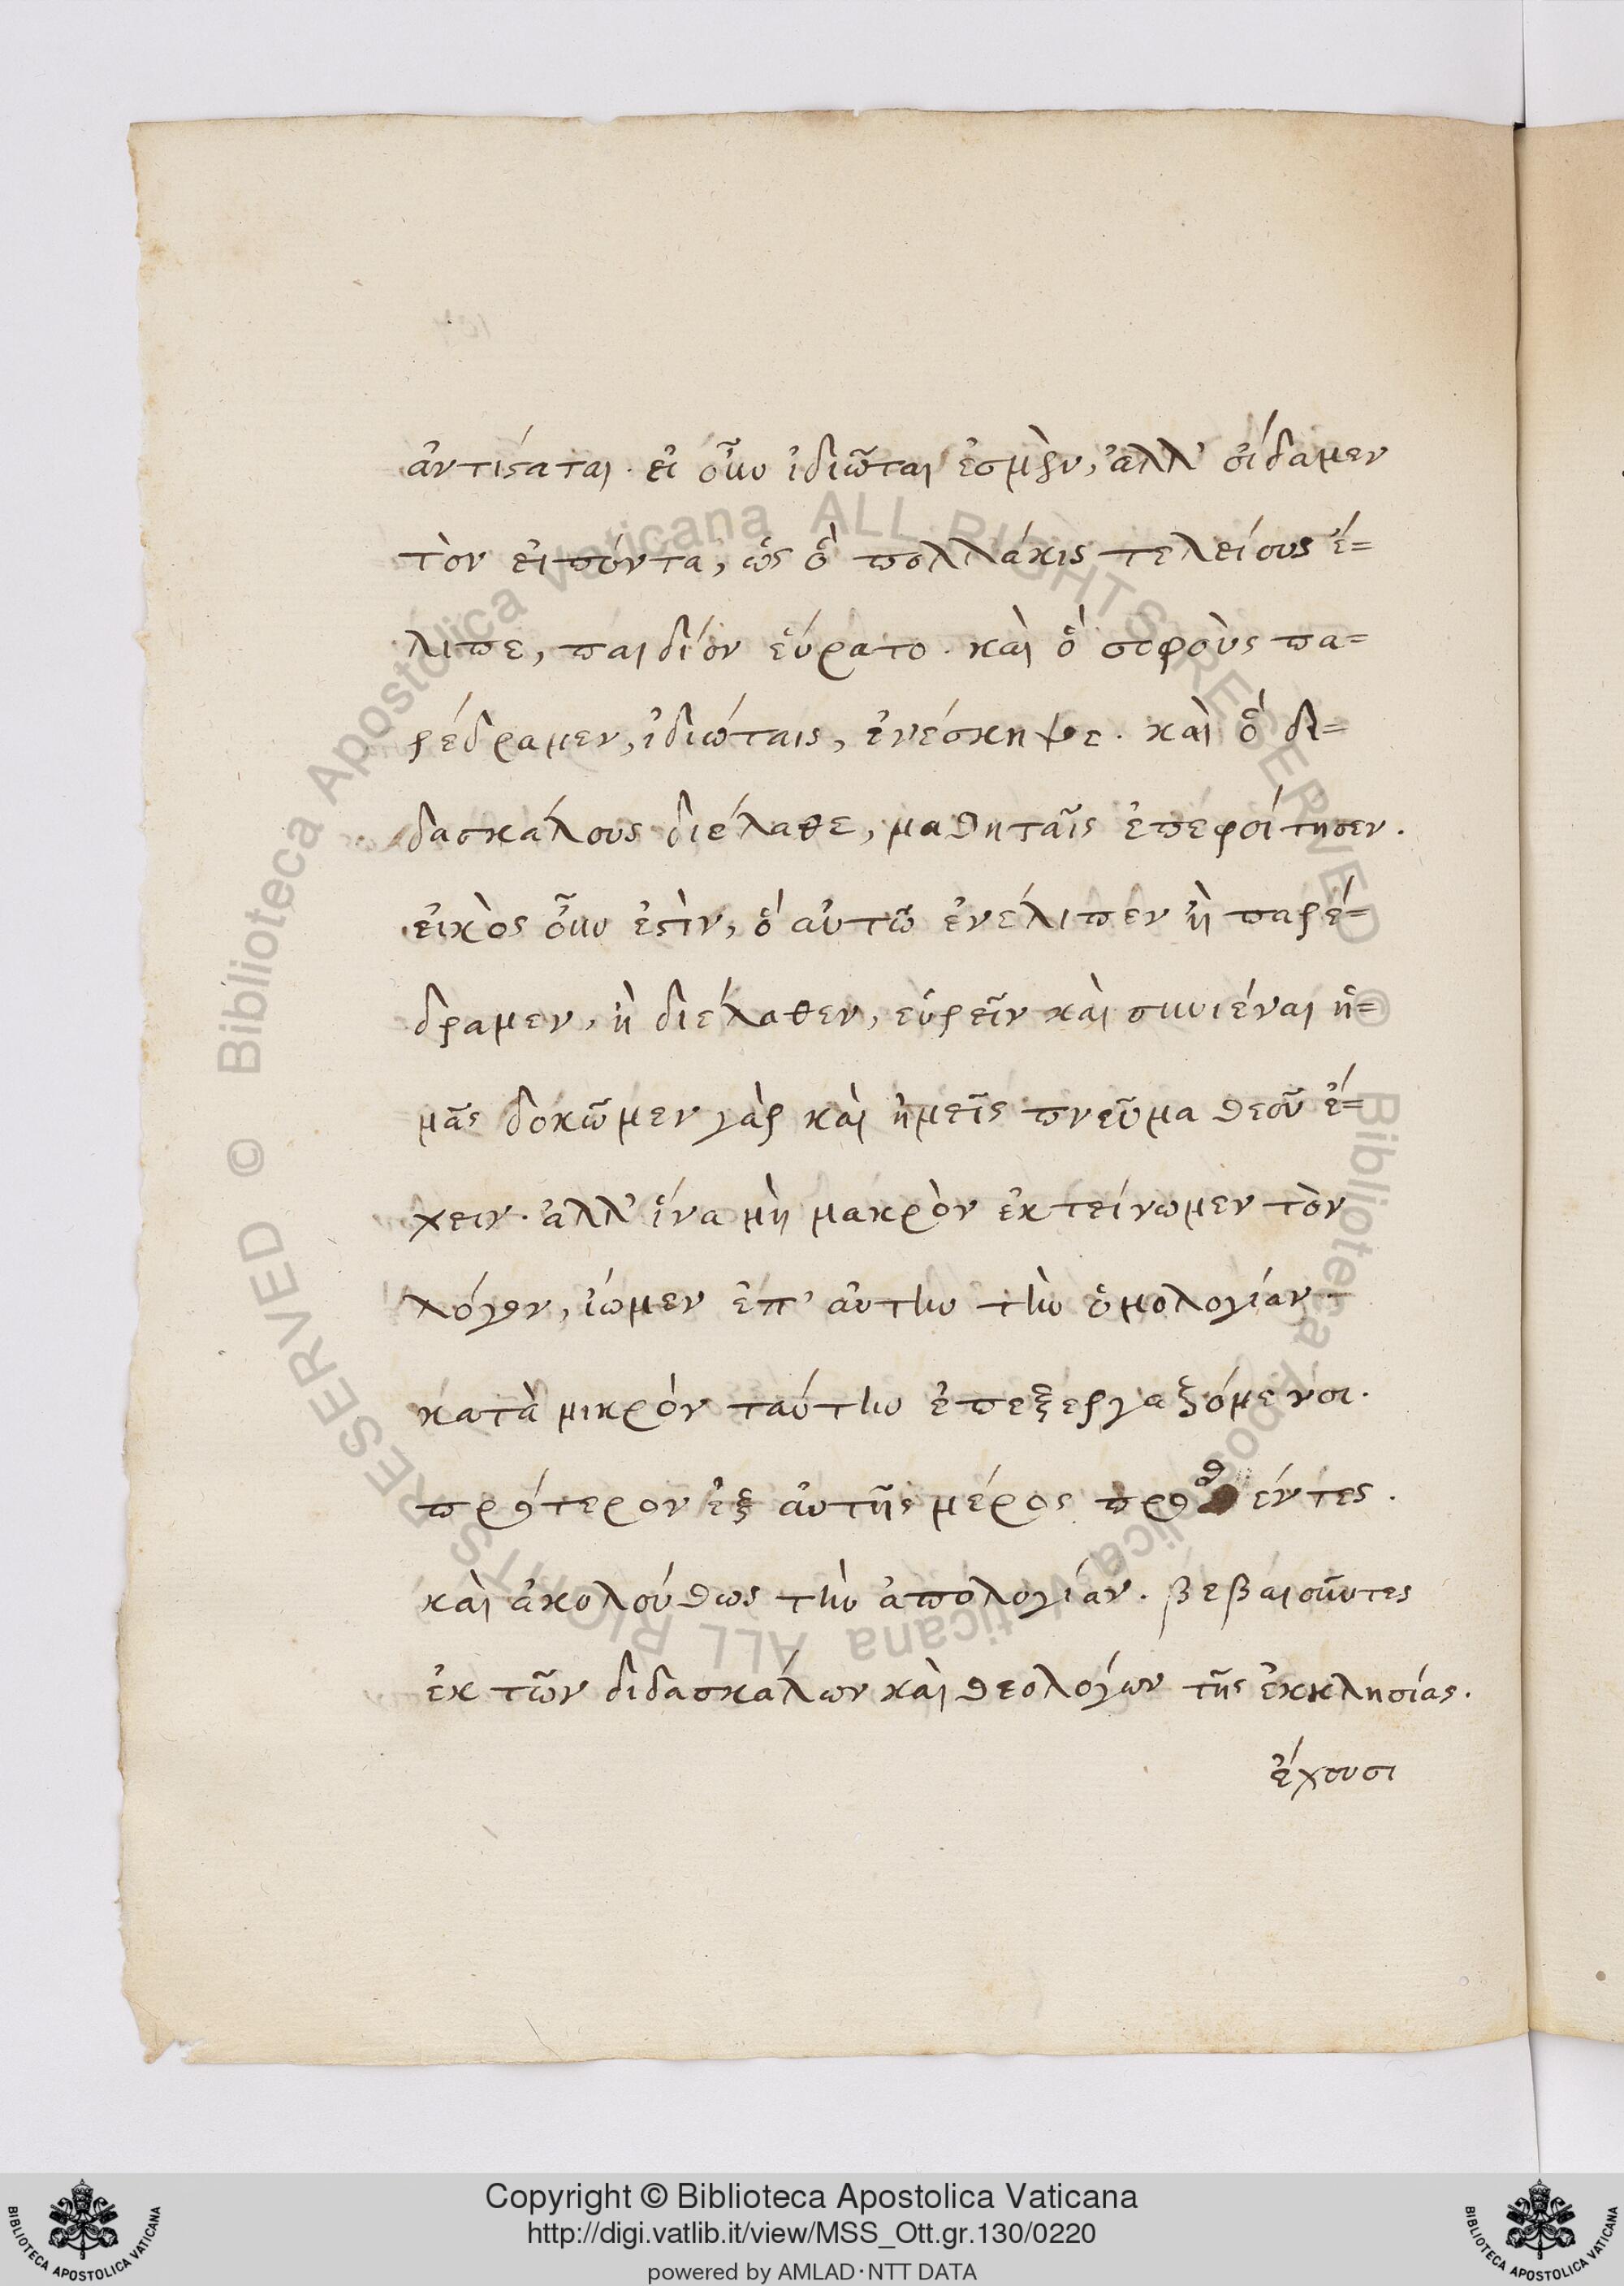 ἀντίσταται. εἰ οὖν ἰδιῶται ἐσμὲν, ἀλλ' οἴδαμεν
τὸν εἰπόντα, ὡς ὃ πολλάκις τελείους ἔ=
λιπε, παιδίον εὕρατο. καὶ ὃ σοφοὺς πα=
ρέδραμεν, ἰδιώταις, ἐνέσκηψε. καὶ ὃ δι=
δασκάλους διέλαθε, μαθηταῖς ἐπεφοίτησεν.
εἰκὸς οὖν ἐστὶν, ὃ αὐτῶ ἐνέλιπεν ἢ παρέ=
δραμεν, ἢ διέλαθεν, εὑρεῖν καὶ συνιέναι ἡ=
μᾶς δοκῶμεν γὰρ καὶ ἡμεῖς πνεῦμα θεοῦ ἔ=
χειν. ἀλλ' ἵνα μὴ μακρὸν ἐκτείνωμεν τὸν
λόγον, ἴωμεν ἐπ' αὐτὴν τὴν ὁμολογίαν.
κατὰ μικρὸν ταύτην ἐπεξεργαζόμενοι.
πρότερον ἐξ αὐτῆς μέρος προθέντες.
καὶ ἀκολούθως τὴν ἀπολογίαν. βεβαιοῦντες
ἐκ τῶν διδασκάλων καὶ θεολόγων τῆς ἐκκλησίας.
ἔχουσι
Biblioteca Apostolica Vaticana ALL RIGHTS RESERVED © Biblioteca Apostolica Vaticana ALL RIGHTS RESERVED ©
Copyright © Biblioteca Apostolica Vaticana
http://digi.vatlib.it/view/MSS_Ott.gr.130/0220
powered by AMLAD·NTT DATA
BIBLIOTECA APOSTOLICA VATICANA
BIBLIOTECA APOSTOLICA VATICANA